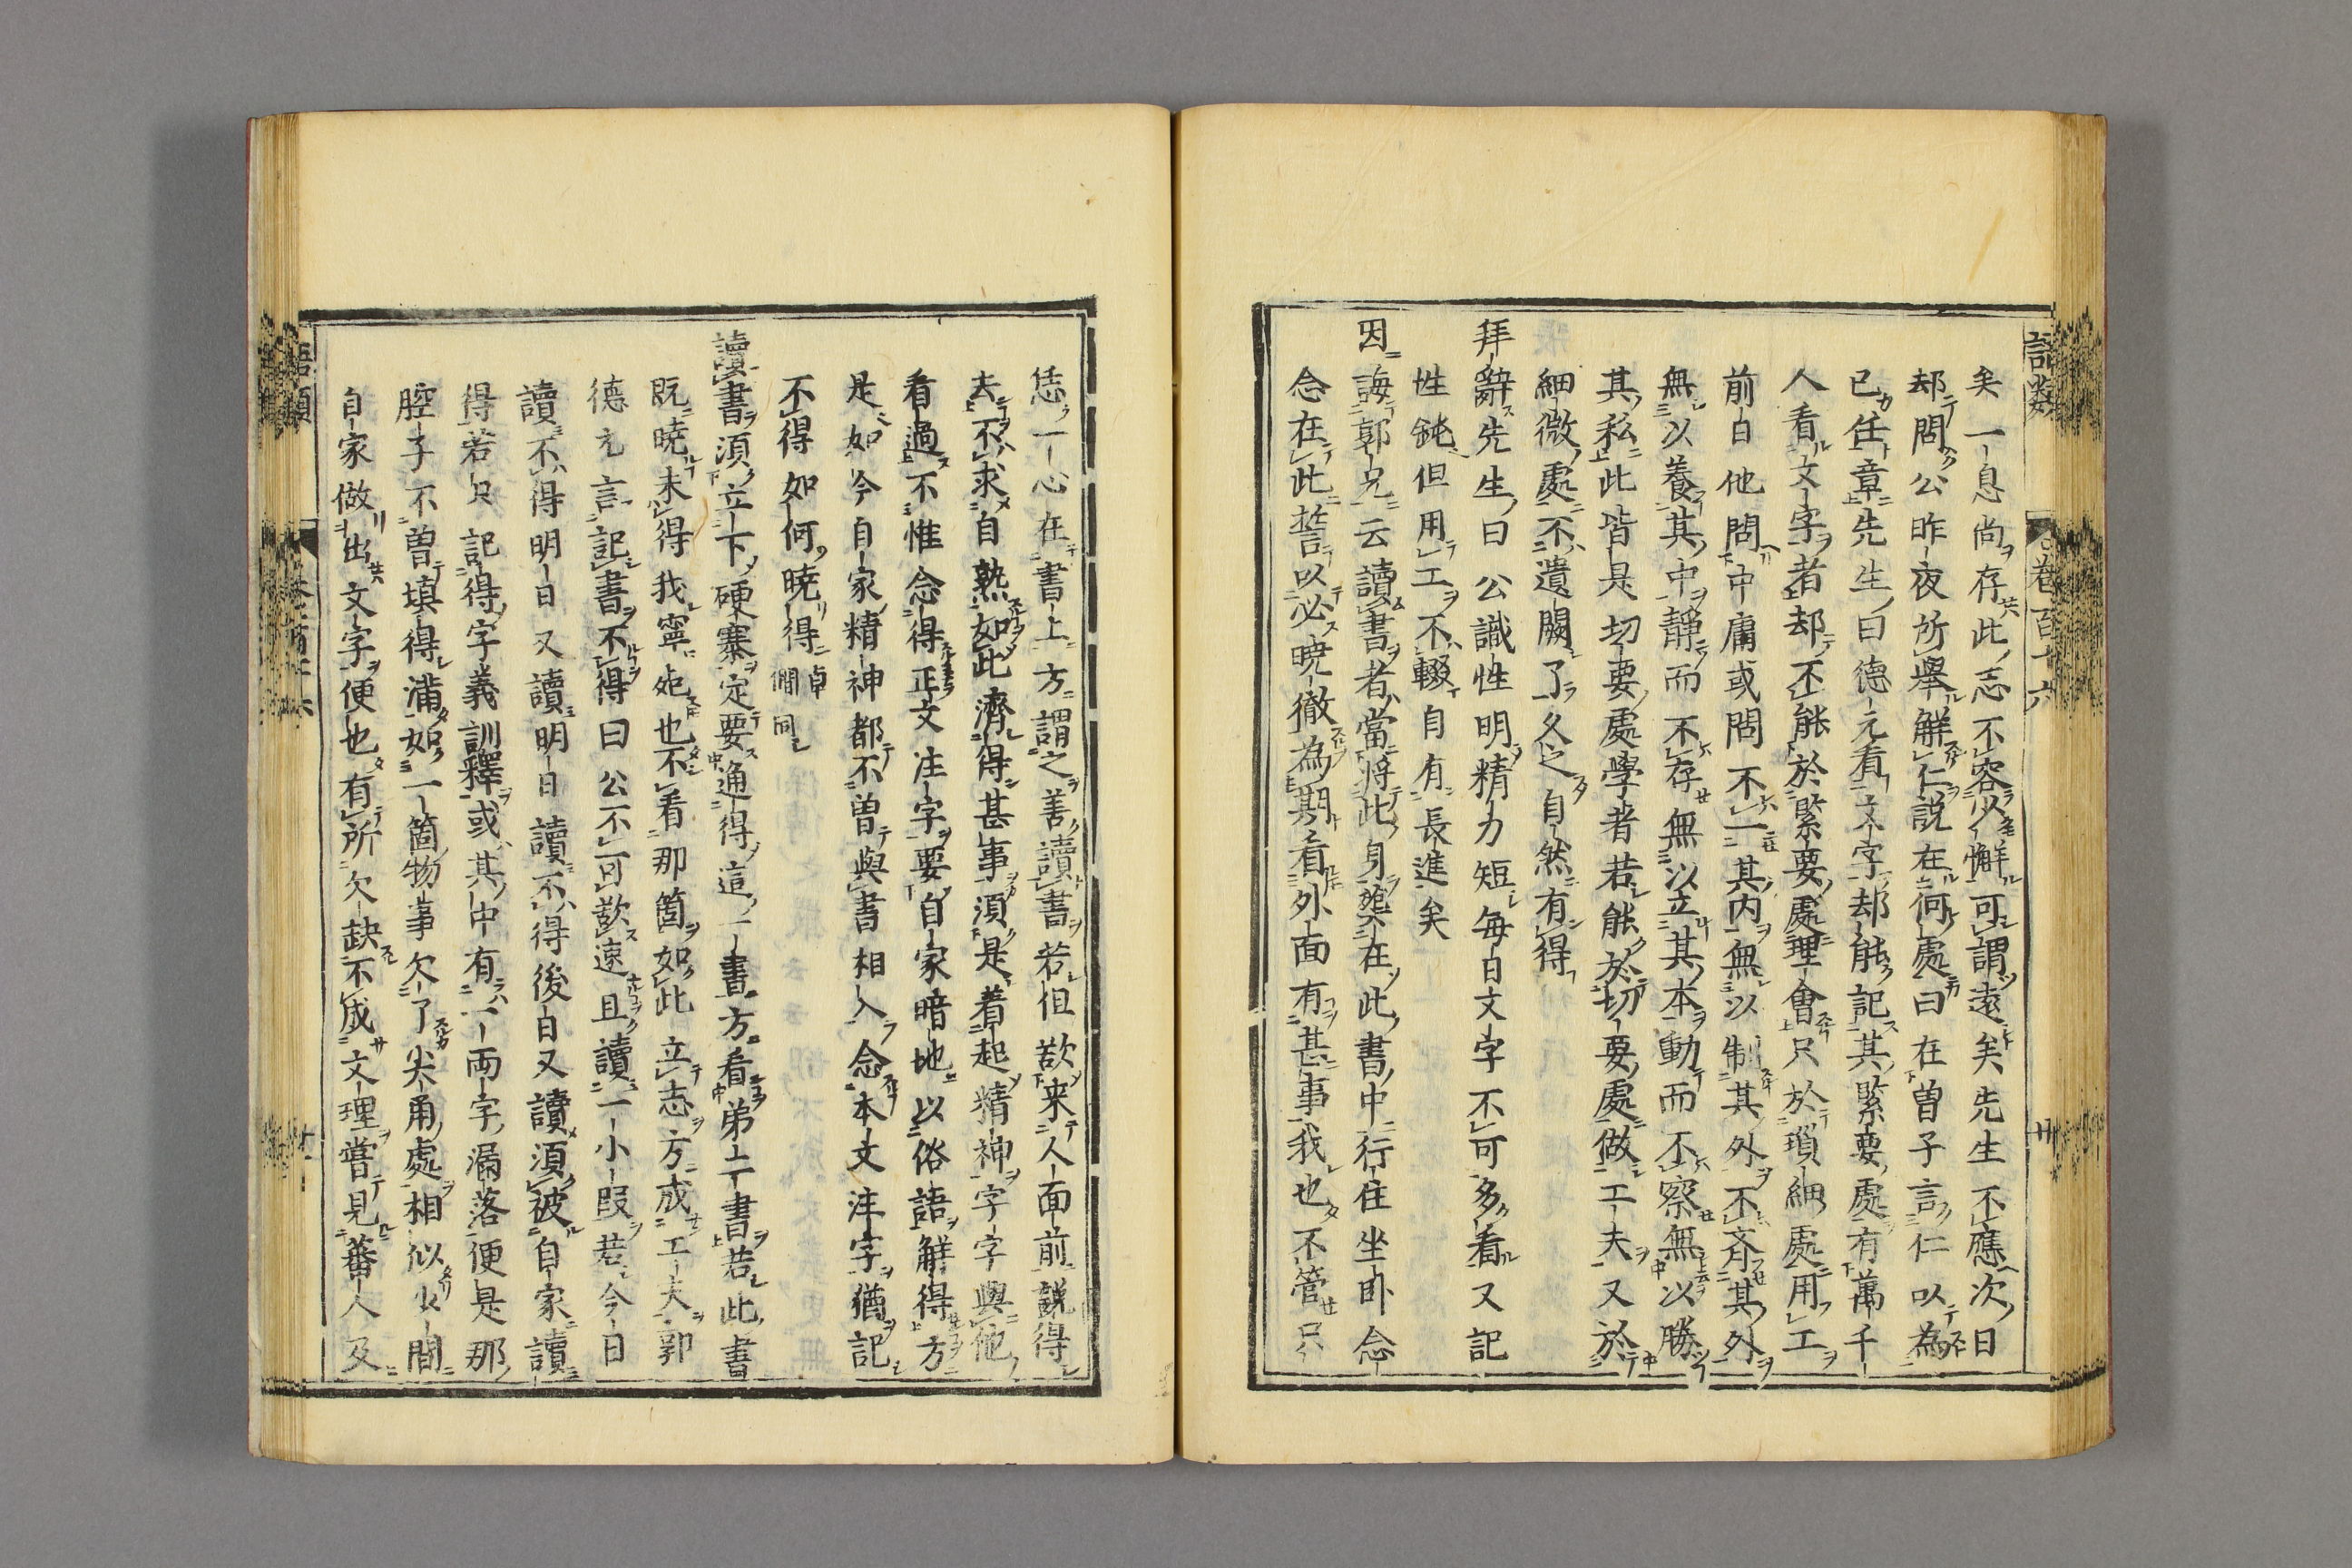 語類
卷百十六
廿
矣一息尚存此志不容以懈可謂遠矣先生不應次日
却問公昨夜所舉解仁說在何處曰在曽子言仁以為
已任章先生曰德元看文字却能記其緊要處有萬千
人看文字者却不能於緊要處理會只於瑣細處用工
前日他問中庸或問不一其内無以制其外不齊其外
無以養其中靜而不存無以立其本動而不察無以勝
其私此皆是切要處學者若能於切要處做工夫又於
細微處不遺闕了久之自然有得
拜辭先生曰公識性明精力短每日文字不可多看又記
性鈍但用工不輟自有長進矣
因誨郭兄云讀書者當將此身葬在此書中行住坐卧念
念在此誓以必曉徹為期看外面有甚事我也不管只
恁一心在書上方謂之善讀書若但欲来人面前說得
去不求自熟如此濟得甚事須是着起精神字字與他
看過不惟念得正文注字要自家暗地以俗語解得方
是如今自家精神都不曽與書相入念本文注字猶記
不得如何曉得卓僩同
讀書須立下硬寨定要通得這一書方看第二書若此書
既曉未得我寧死也不看那箇如此立志方成工夫郭
德元言記書不得曰公不可欲速且讀一小段若今日
讀不得明日又讀明日讀不得後日又讀須被自家讀
得若只記得字義訓釋或其中有一兩字漏落便是那
腔子不曽填得滿如一箇物事欠了尖角處相似少間
自家做出文字便也有所欠缺不成文理嘗見蕃人及
語類